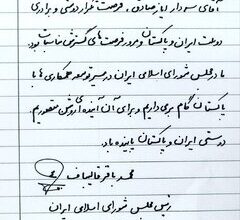 آقای سردار ایاز صادق، فرصت قرار دوستی و برادری
دولت ایران و پاکستان و مرور فرصت های گسترش مناسبات بود.
ما در مجلس شورای اسلامی ایران در مسیر توسعه همکاری ها با
پاکستان گام برمی داریم و برای آن آینده ی ارزشی متصوریم.
دوستی ایران و پاکستان پاینده باد.
محمد باقر قالیباف
رئیس مجلس شورای اسلامی ایران